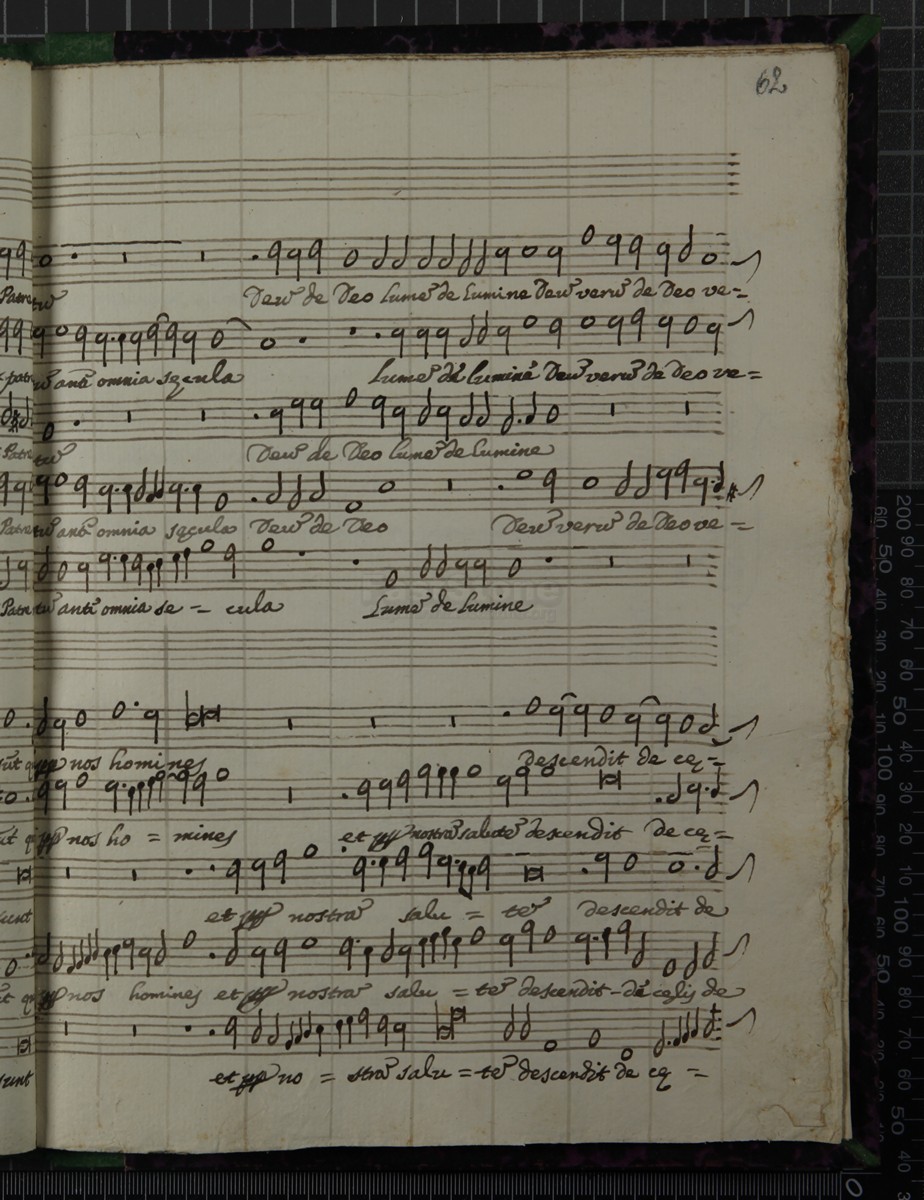 62
Patre tū Deuˢ de Deo lumeˢ de lumine Deuˢ verūˢ de Deo ve-=
patre tū ante omnia sęcula lumeˢ de lumine Deuˢ verūˢ de Deo ve=
Patre tū Deuˢ de Deo lumeˢ de lumine
Patre tū ante omnia sęcula Deuˢ de Deo Deuˢ verūˢ de Deo ve =
Patre tū ante omnia se -= cula lumeˢ de lumine
nos homines descendit de cę-=
nos ho = mines et nostrā salutē descendit de cę=
sunt et nostrā salu = tē descendit de
nos homines et nostrā salu = tē descendit de cęlis de
sunt et no = strā salu = tē descendit de cę =